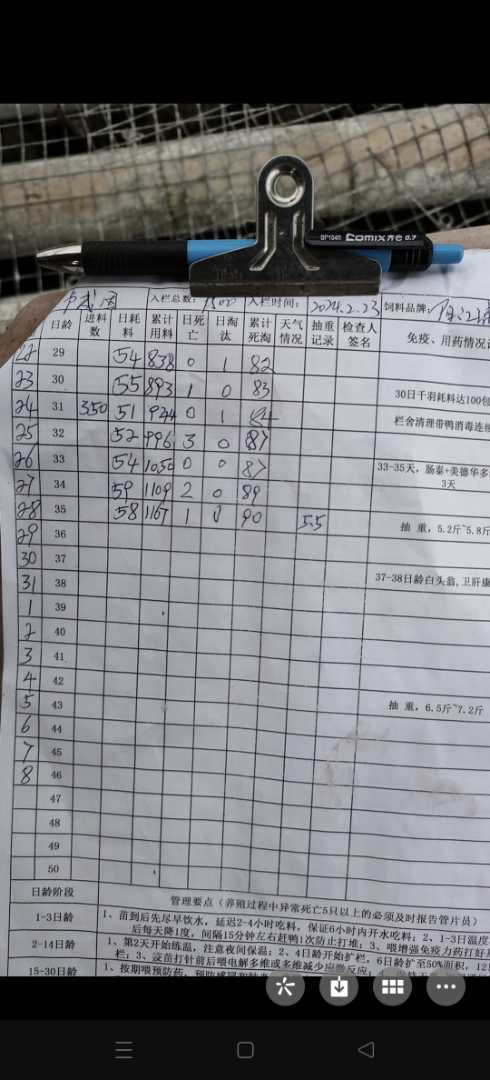 QP1045 Comix齐心 0.7
入栏总数: 入栏时间: 2024.2.23 饲料品牌:
日龄 进料数 日耗料 累计用料 日死亡 日淘汰 累计死淘 天气情况 抽重记录 检查人签名 免疫、用药情况
22 29 54 838 0 1 82
23 30 55 893 1 0 83 30日千羽耗料达100包
24 31 350 51 944 0 1 84 栏舍清理带鸭消毒连续
25 32 52 996 3 0 87
26 33 54 1050 0 0 87 33-35天,肠泰+美德华多
3天
27 34 59 1109 2 0 89
28 35 58 1167 1 0 90 5.5 抽 重,5.2斤~5.8斤
29 36
30 37
31 38 37-38日龄白头翁,卫肝康
1 39
2 40
3 41
4 42
5 43 抽 重,6.5斤~7.2斤
6 44
7 45
8 46
47
48
49
50
日龄阶段 管理要点(养殖过程中异常死亡5只以上的必须及时报告管片员)
1-3日龄 1、苗到后先尽早饮水,延迟2-4小时吃料,保证6小时内开水吃料;2、1-3日温度
后每天降1度,间隔15分钟左右赶鸭1次防止打堆;3、喂增强免疫力药打好
2-14日龄 1、第2天开始练温,注意夜间保温;2、4日龄开始扩栏,6日龄扩至50%面积,12
栏;3、疫苗打针前后喂电解多维或多维减少应激反应;
15-30日龄 1、按期喂预防药,预防感冒